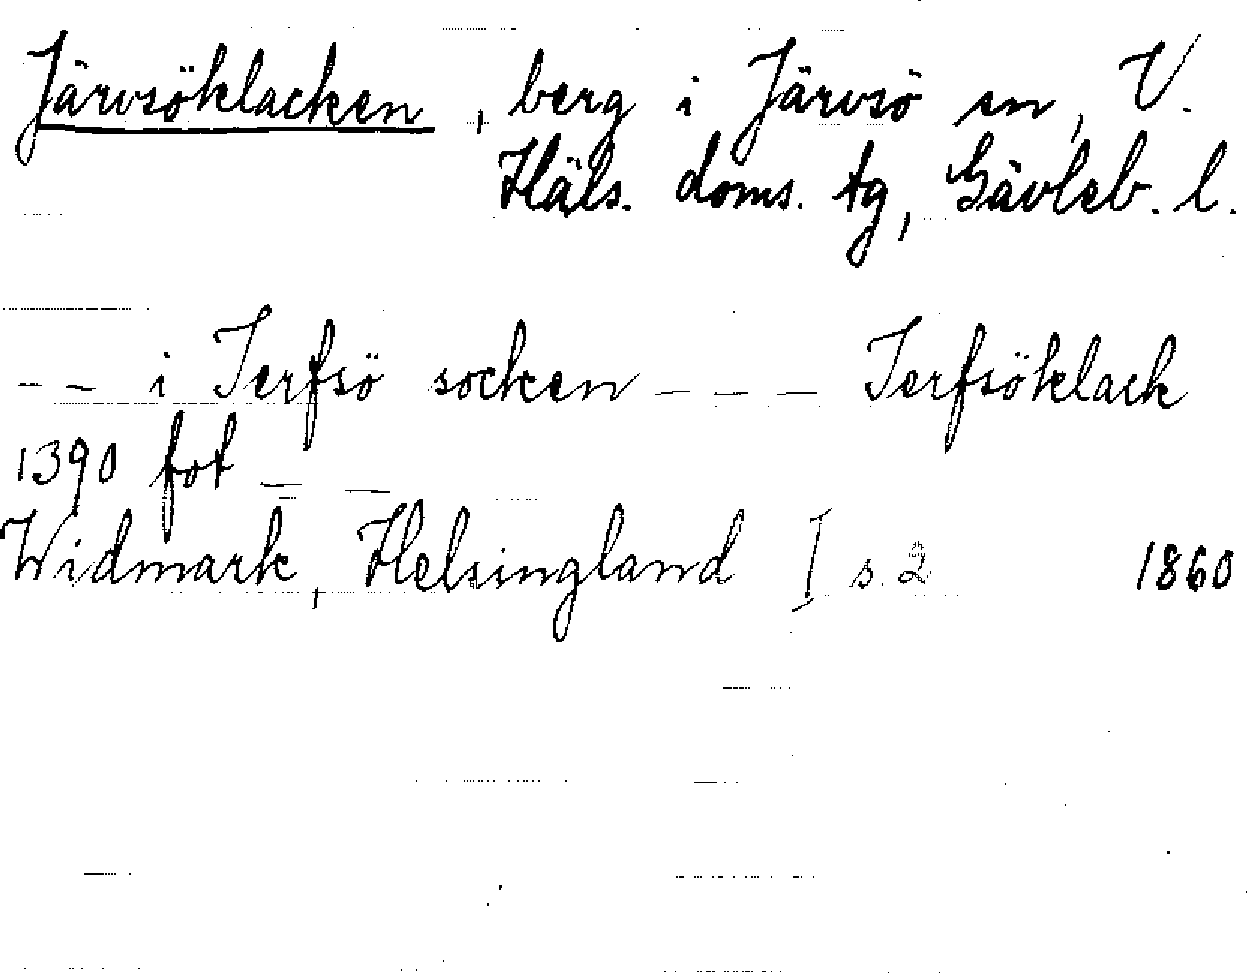 Järvsöklacken, berg i Järvsö sn, V.
Häls. doms. tg, Gävleb. l.
– – i Jerfsö socken – – – Jerfsöklack
1390 fot – –
Widmark, Helsingland I s. 2 1860